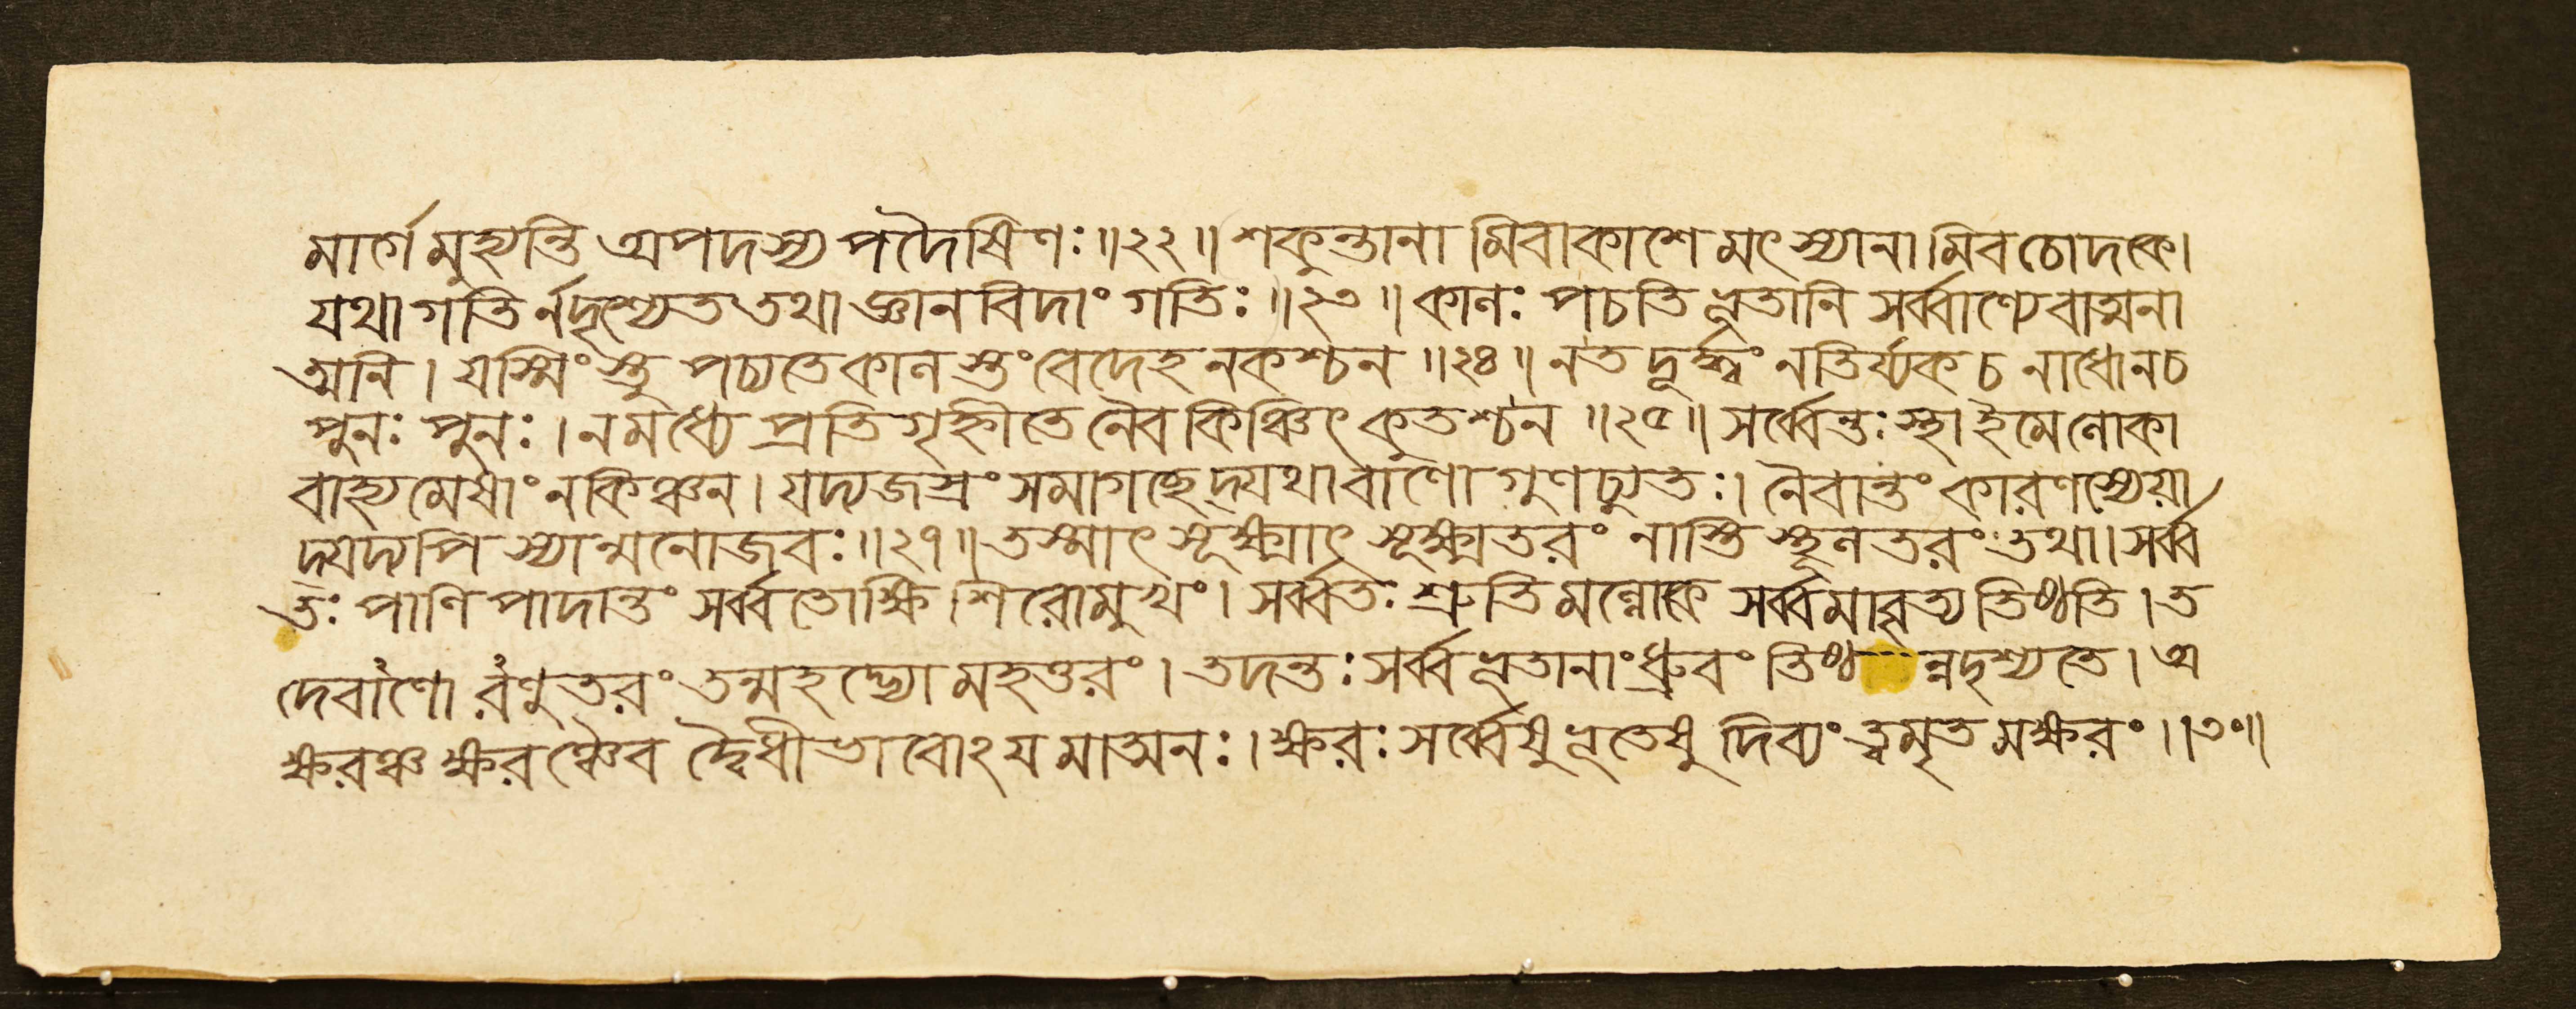 মার্গে মুহ্যন্তি অপদস্য পদৈষিণঃ॥২২॥ শকুন্তানামিবাকাশে মৎস্যানামিব চোদকে।
যথা গতির্নদৃশ্যেত তথা জ্ঞানবিদাং গতিঃ॥২৩॥ কালঃ পচতি ভূতানি সর্ব্বাণ্যেবাত্মনা
ত্মনি। যস্মিংস্তু পচ্যতে কালস্তং বেদেহ নকশ্চন॥২৪॥ নতদূর্দ্ধ্বং নতির্য্যক চ নাধো নচ
পুনঃ পুনঃ। নমধ্যে প্রতিগৃহ্নীতে নৈব কিঞ্চিৎ কুতশ্চন॥২৫॥ সর্ব্বেন্তঃস্থা ইমে লোকা
বাহ্যমেষাং নকিঞ্চন। যদ্যজস্রং সমাগচ্ছেদ্যথা বাণো গুণচ্যুতঃ। নৈবান্তং কারণস্যেয়া
দ্যদ্যপি স্যান্মনোজবঃ॥২৭॥ তস্মাৎ সূক্ষ্মাৎ সূক্ষ্মতরং নাস্তি স্থূলতরং তথা। সর্ব্ব
তঃ পাণিপাদান্তং সর্ব্বতোক্ষিশিরোমুখং। সর্ব্বতঃ শ্রুতিমল্লোকে সর্ব্বমাবৃত্য তিষ্ঠতি। ত
দেবাণোরণুতরং তন্মহদ্ভ্যো মহত্তরং। তদন্তঃ সর্ব্বভূতানাং ধ্রুবং তিষ্ঠ ন্নদৃশ্যতে। অ
ক্ষরঞ্চ ক্ষরঞ্চৈব দ্বৈধীভাবোঽযমাত্মনঃ। ক্ষরঃ সর্ব্বেষু ভূতেষু দিব্যং ত্বমৃতমক্ষরং॥৩০॥